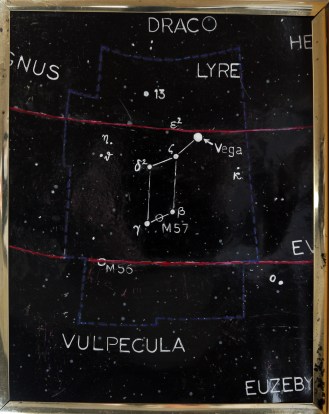 DRACO
HE
GNUS
LYRE
13
ε²
Vega
η
ζ
ϑ
δ²
κ
β
γ
M57
EV
M56
o
VULPECULA
EUZEBY